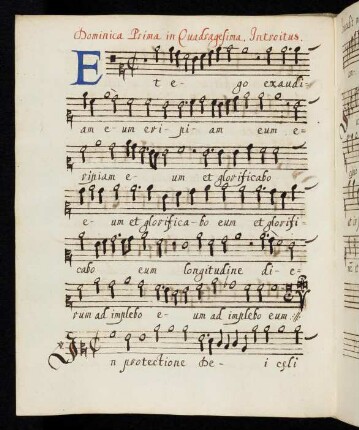 Dominica Prima in Quadragesima. Introitus.
E t e - go exaudi-
am e - um eri - pi - am eum e-
ripiam e - um et glorificabo
e - um et glorifica - bo eum et glorifi-
cabo eum longitudine di - e-
rum ad implebo e - um ad implebo eum.
In protectione De - i cęli